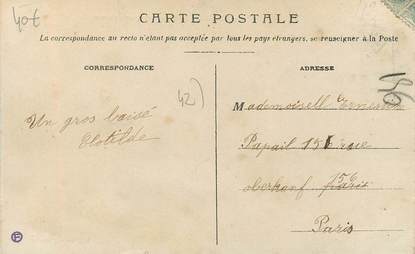 40t
CARTE POSTALE
La correspondance au recto n'étant pas acceptée par tous les pays étrangers, se renseigner à la Poste
CORRESPONDANCE
ADRESSE
42)
Un gros baisé
Clotilde
Mademoisell Ernestine
Papail 156 rue
oberkanf 156 Paris
Paris